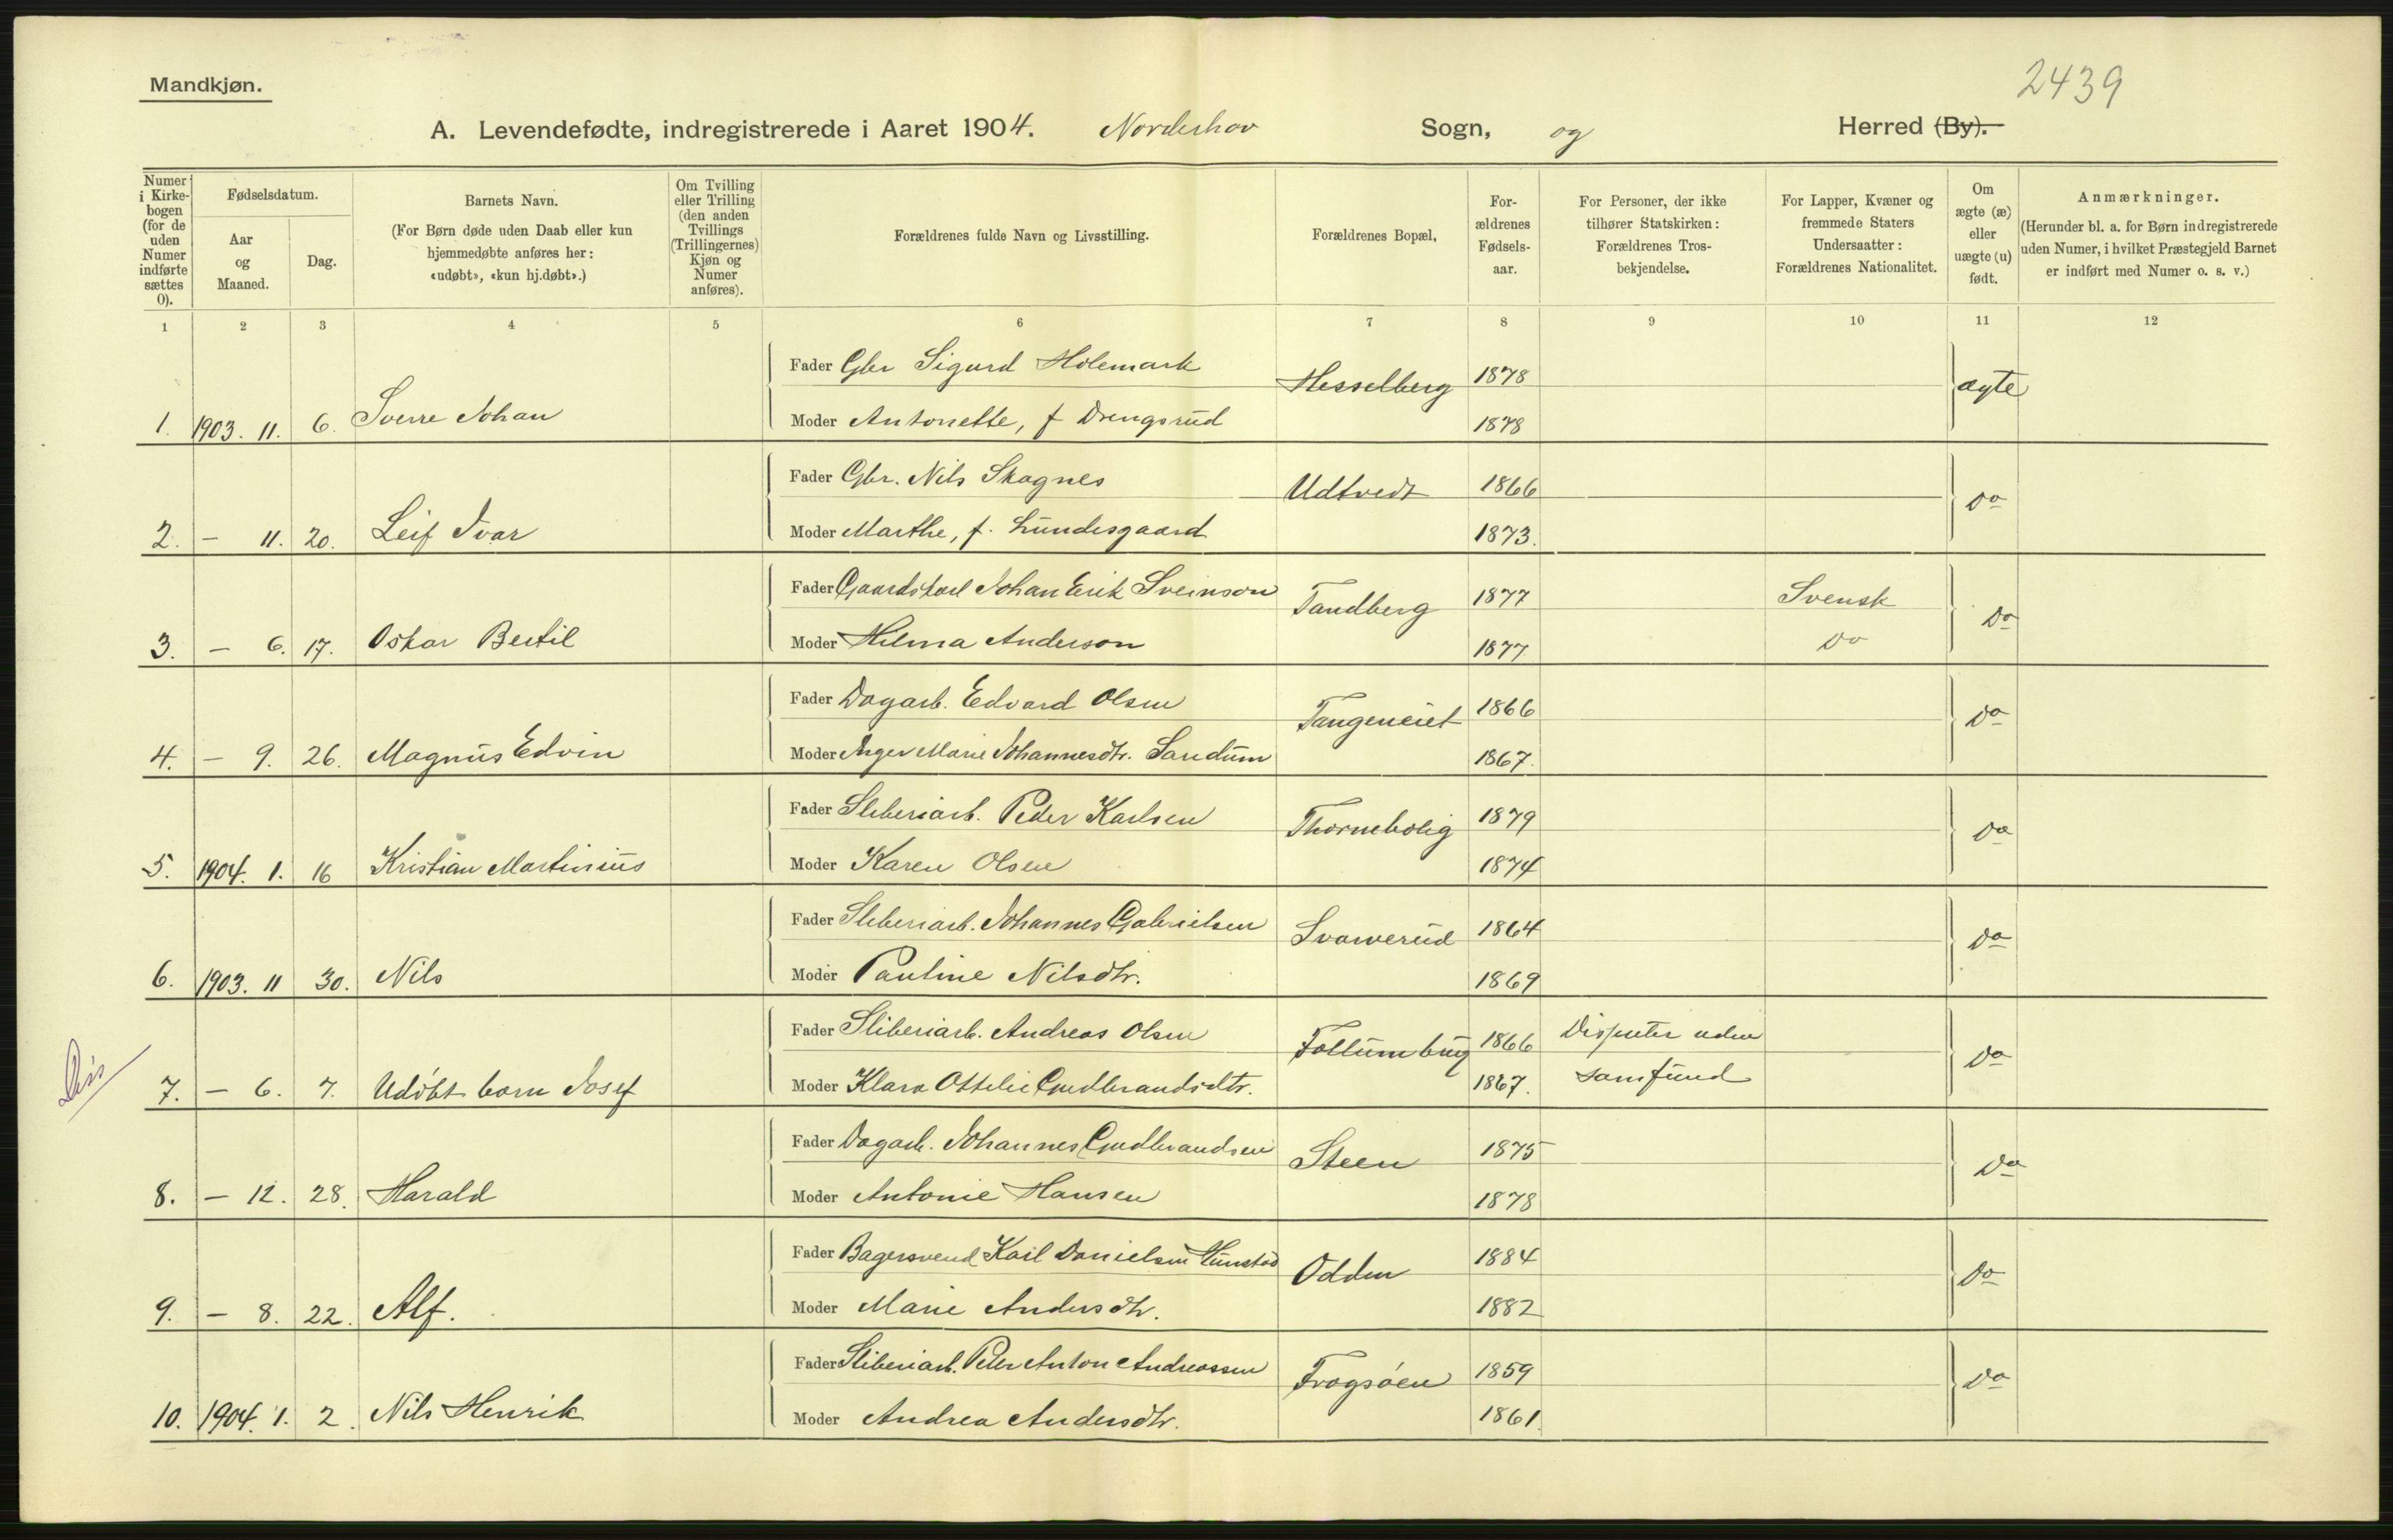 2439
Mandkjøn.
A. Levendefødte, indregistrerede i Aaret 1904. Norderhov Sogn, og Herred (By).
Numer i Kirkebogen (for de uden Numer indførte sættes 0).
Fødselsdatum.
Aar og Maaned.
Dag.
Barnets Navn.
(For Børn døde uden Daab eller kun hjemmedøbte anføres her: «udøbt», «kun hj.døbt».)
Om Tvilling eller Trilling (den anden Tvillings (Trillingernes) Kjøn og Numer anføres).
Forældrenes fulde Navn og Livsstilling.
Forældrenes Bopæl.
Forældrenes Fødselsaar.
For Personer, der ikke tilhører Statskirken: Forældrenes Trosbekjendelse.
For Lapper, Kvæner og fremmede Staters Undersaatter: Forældrenes Nationalitet.
Om ægte (æ) eller uægte (u) født.
Anmærkninger.
(Herunder bl. a. for Børn indregistrerede uden Numer, i hvilket Præstegjeld Barnet er indført med Numer o. s. v.)
1 2 3 4 5 6 7 8 9 10 11 12
Fader Gbr Sigurd Holemark Hesselberg 1878 ægte
1. 1903. 11. 6. Sverre Johan Moder Antonette, f Drengsrud 1878
Fader Gbr. Nils Skagnes Udtvedt 1866 do
2. - 11. 20. Leif Ivar Moder Marthe, f. Lundesgaard 1873.
Fader Gaardskarl Johan Erik Sveinson Tandberg 1877 Svensk do
3. - 6. 17. Oskar Bertil Moder Hilma Anderson 1877 do
Fader Dagarb. Edvard Olsen Tangeneiet 1866 do
4. - 9. 26. Magnus Edvin Moder Inger Marie Johannesdtr. Sandum 1867.
Fader Sliberiarb. Peder Karlsen Thornebolig 1879 do
5. 1904. 1. 16 Kristian Martinius Moder Karen Olsen 1874
Fader Sliberiarb. Johannes Gabrielsen Svarverud 1864 do
6. 1903. 11 30. Nils Moder Pauline Nilsdtr. 1869
Fader Sliberiarb. Andreas Olsen Follumbyg 1866 Dissenter uden do
Dis 7. - 6. 7. Udöbt barn Josef Moder Klara Ottelie Gudbrandsdtr. 1867. samfund
Fader Dagarb. Johannes Gudbrandsen Steen 1875 do
8. - 12. 28. Harald Moder Antonie Hansen 1878
Fader Bagersvend Karl Danielsen Odden 1884 do
9. - 8. 22. Alf. Moder Marie Andersdtr. 1882
Fader Sliberiarb. Peter Anton Andreassen Frogsöen 1859 do
10. 1904. 1. 2. Nils Henrik Moder Andrea Andersdtr. 1861.